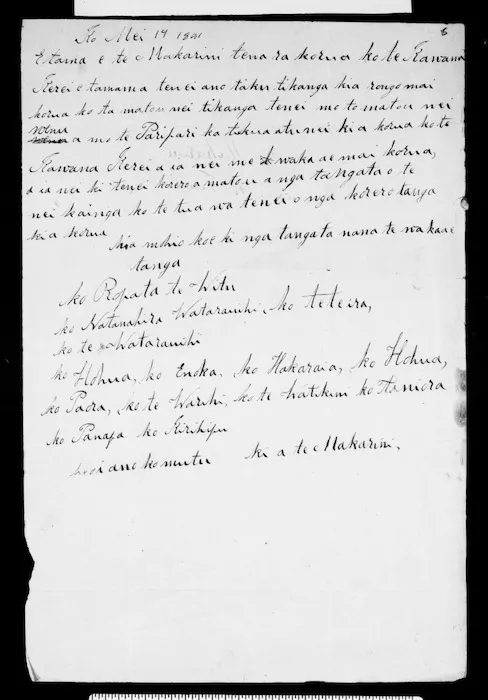 Ko Mei 14 1851
6
E tama e te Makarini tena ra korua ko te Kawana
Kerei e tamama tenei ano taku tikanga kia rongo mai
korua ko ta matou nei tikanga tenei mo to matou nei
wenua a mo te Paripari ka tukua atu nei ki a korua ko te
Kawana Kerei a ia nei me wakaae mai korua,
a ia nei ki tenei korero a matou a nga tangata o te
nei kainga ko te tua wa tenei o nga korerotanga
ki a korua
kia mohio koe ki nga tangata nana te wakaae
tanga
ko Ropata te Witu
ko Natanahira Wataranihi, ko te teira,
ko te Wataranihi
ko Hohua, ko Enoka, ko Hakaraia, ko Hohua,
ko Paora, ko te Warihi, ko te Watikini ko Taniora
ko Panapa ko Kirihipu
heoi ano ko mutu ki a te Makarini,